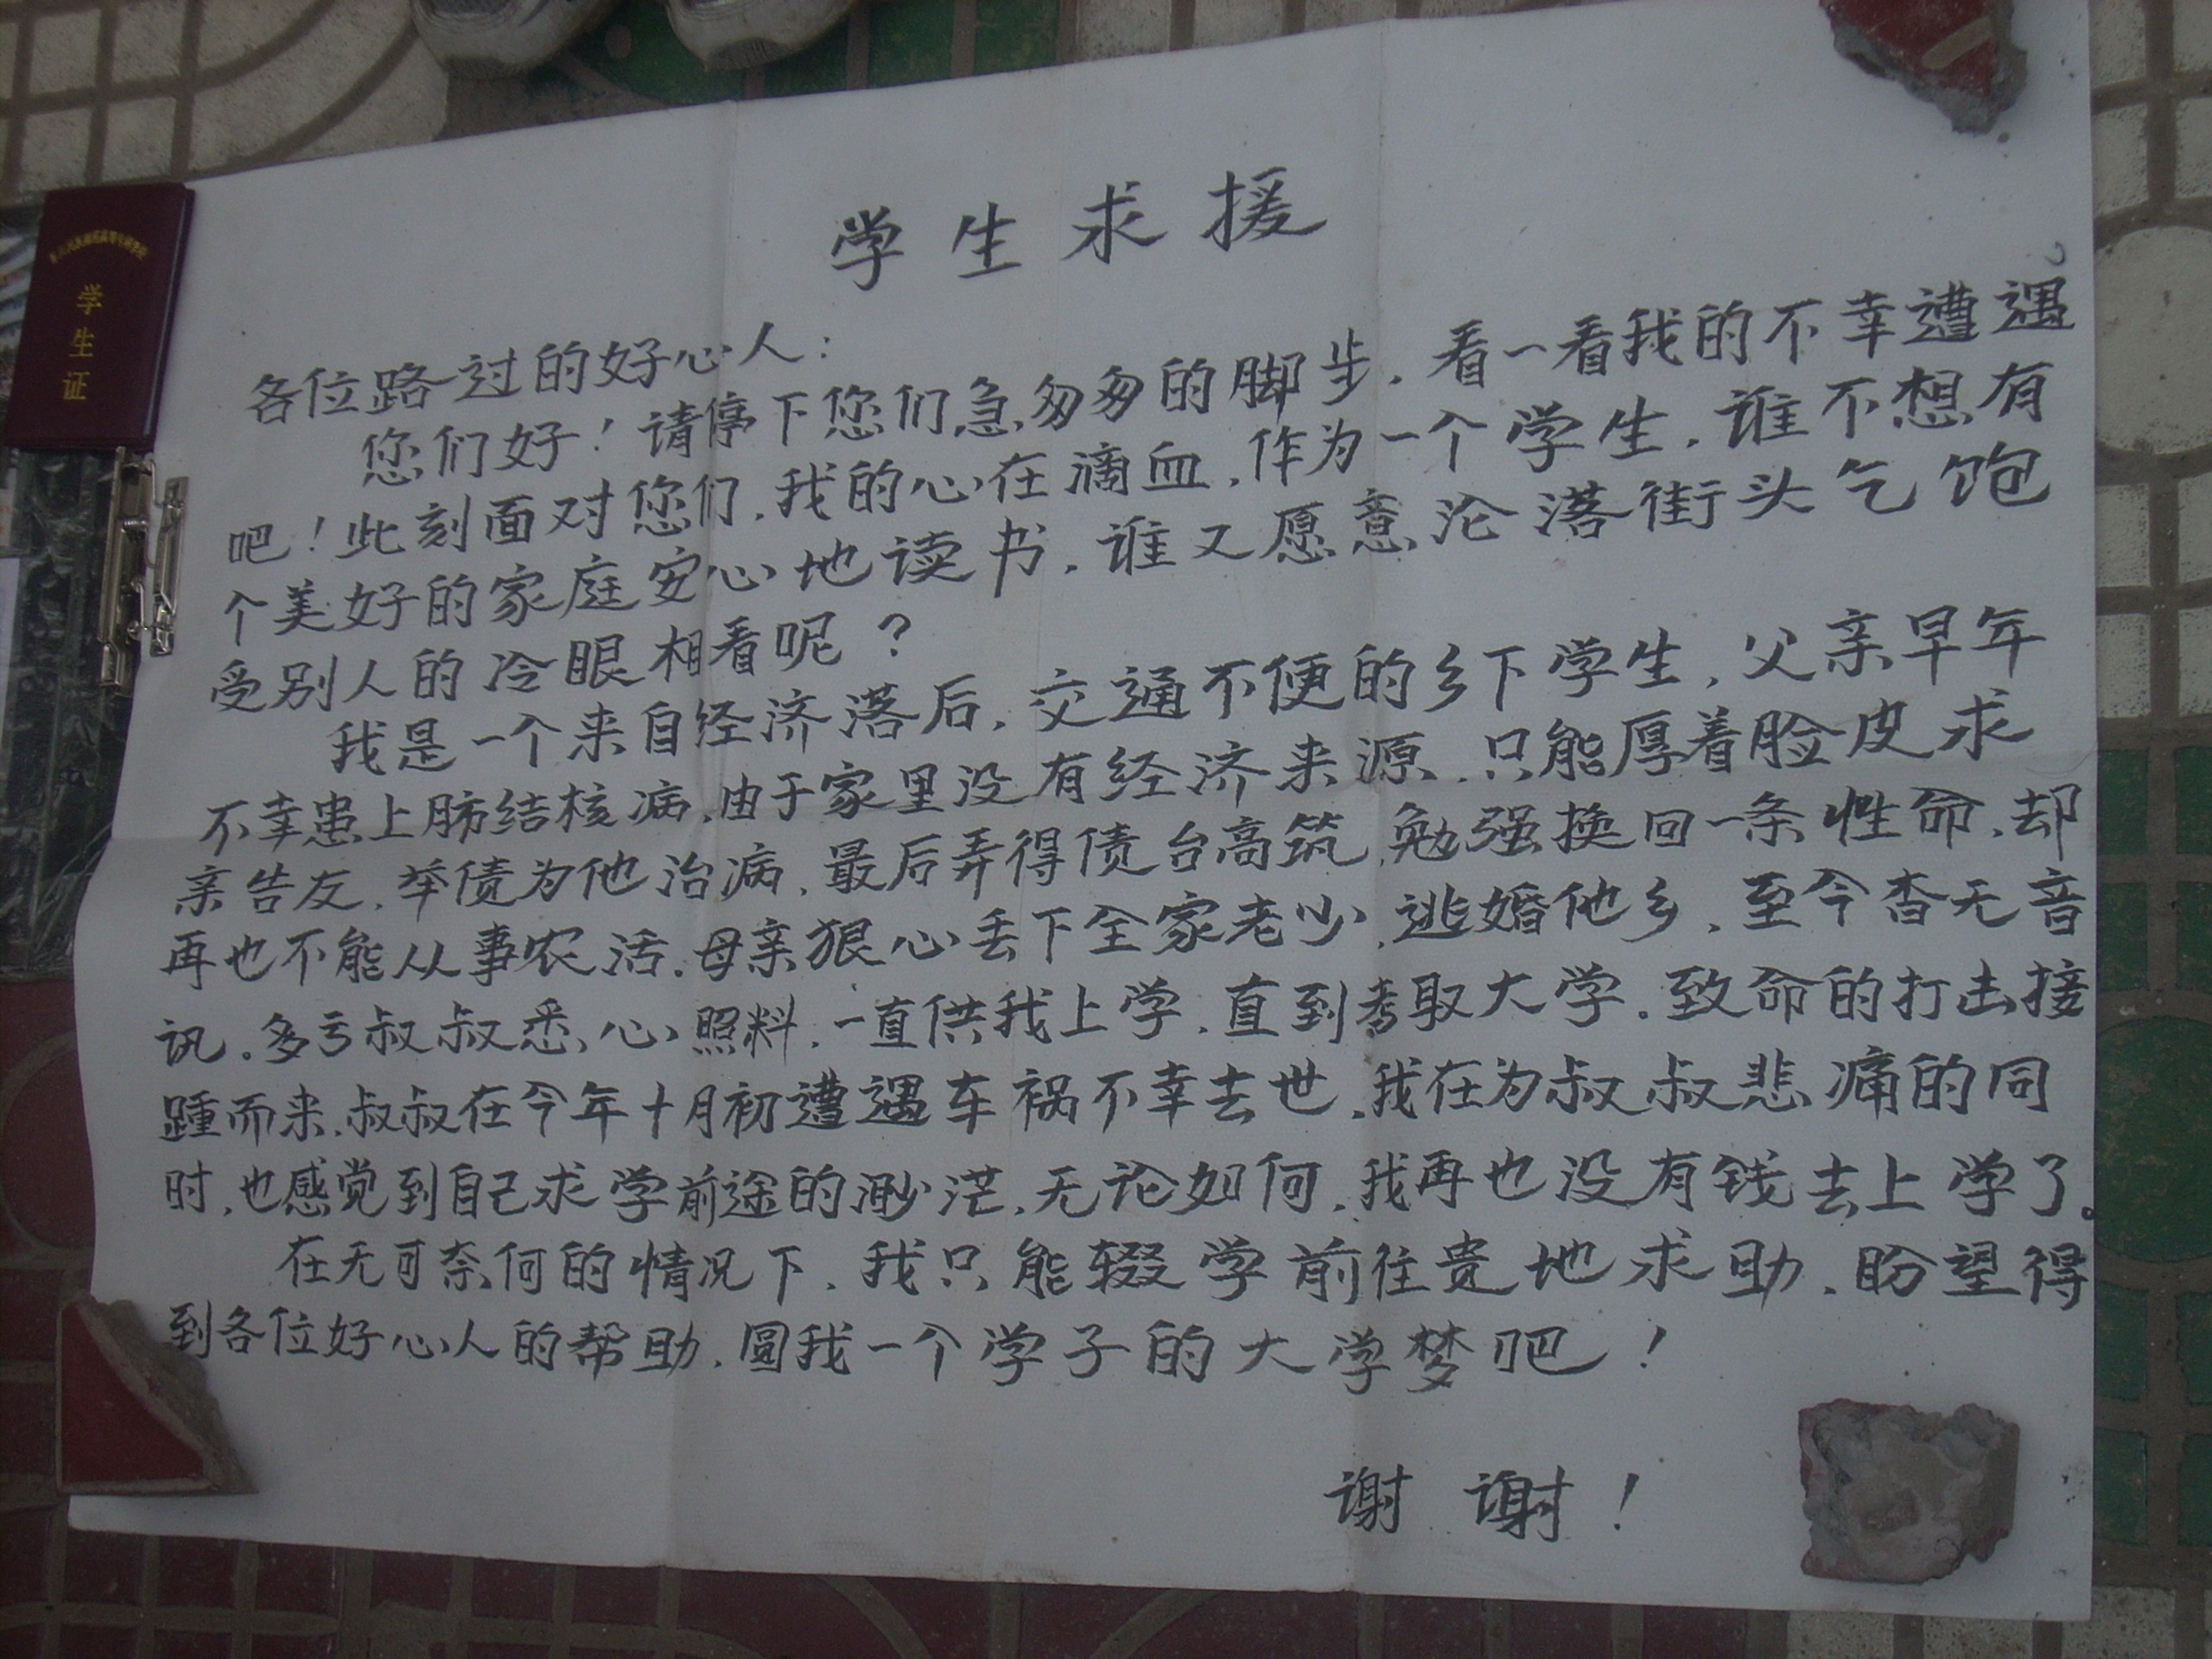 学生求援
各位路过的好心人：
您们好！请停下您们急匆匆的脚步，看一看我的不幸遭遇
吧！此刻面对您们，我的心在滴血，作为一个学生，谁不想有
个美好的家庭安心地读书，谁又愿意沦落街头乞饱
受别人的冷眼相看呢？
我是一个来自经济落后，交通不便的乡下学生，父亲早年
不幸患上肺结核病，由于家里没有经济来源，只能厚着脸皮求
亲告友，举债为他治病，最后弄得债台高筑，勉强换回一条性命，却
再也不能从事农活。母亲狠心丢下全家老少，逃婚他乡，至今杳无音
讯。多亏叔叔悉心照料，一直供我上学，直到考取大学。致命的打击接
踵而来，叔叔在今年十月初遭遇车祸不幸去世，我在为叔叔悲痛的同
时，也感觉到自己求学前途的渺茫，无论如何，我再也没有钱去上学了。
在无可奈何的情况下，我只能辍学前往贵地求助，盼望得
到各位好心人的帮助，圆我一个学子的大学梦吧！
谢谢！
学生证